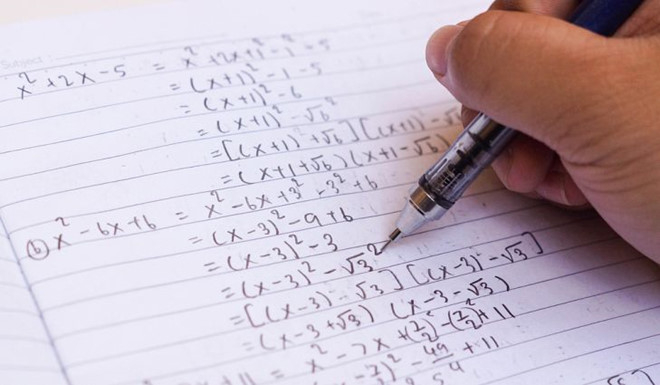 Subject
x² + 2x - 5 = x² + 2x + 1² - 1² - 5
= (x+1)² - 1 - 5
= (x+1)² - 6
= (x+1)² - √6²
= [(x+1) + √6] [(x+1) - √
= (x+1+√6)(x+1-√6)
(b) x² - 6x + 6 = x² - 6x + 3² - 3² + 6
= (x-3)² - 9 + 6
= (x-3)² - 3
= (x-3)² - √3²
= [(x-3) - √3] [(x-3) - √3]
= (x-3+√3) (x-3-√3)
= x² - 7x + (7/2)² - (7/2)² + 11
- 49/4 + 11